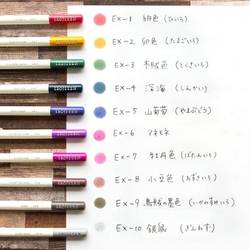 EX-1 緋色 (ひいろ)
EX-2 卵色 (たまごいろ)
EX-3 木賊色 (とくさいろ)
EX-4 深海 (しんかい)
EX-5 山葡萄 (やまぶどう)
EX-6 アネモネ
EX-7 牡丹色 (ぼたんいろ)
EX-8 小豆色 (あずきいろ)
EX-9
EX-10 銀鼠 (ぎんねず)